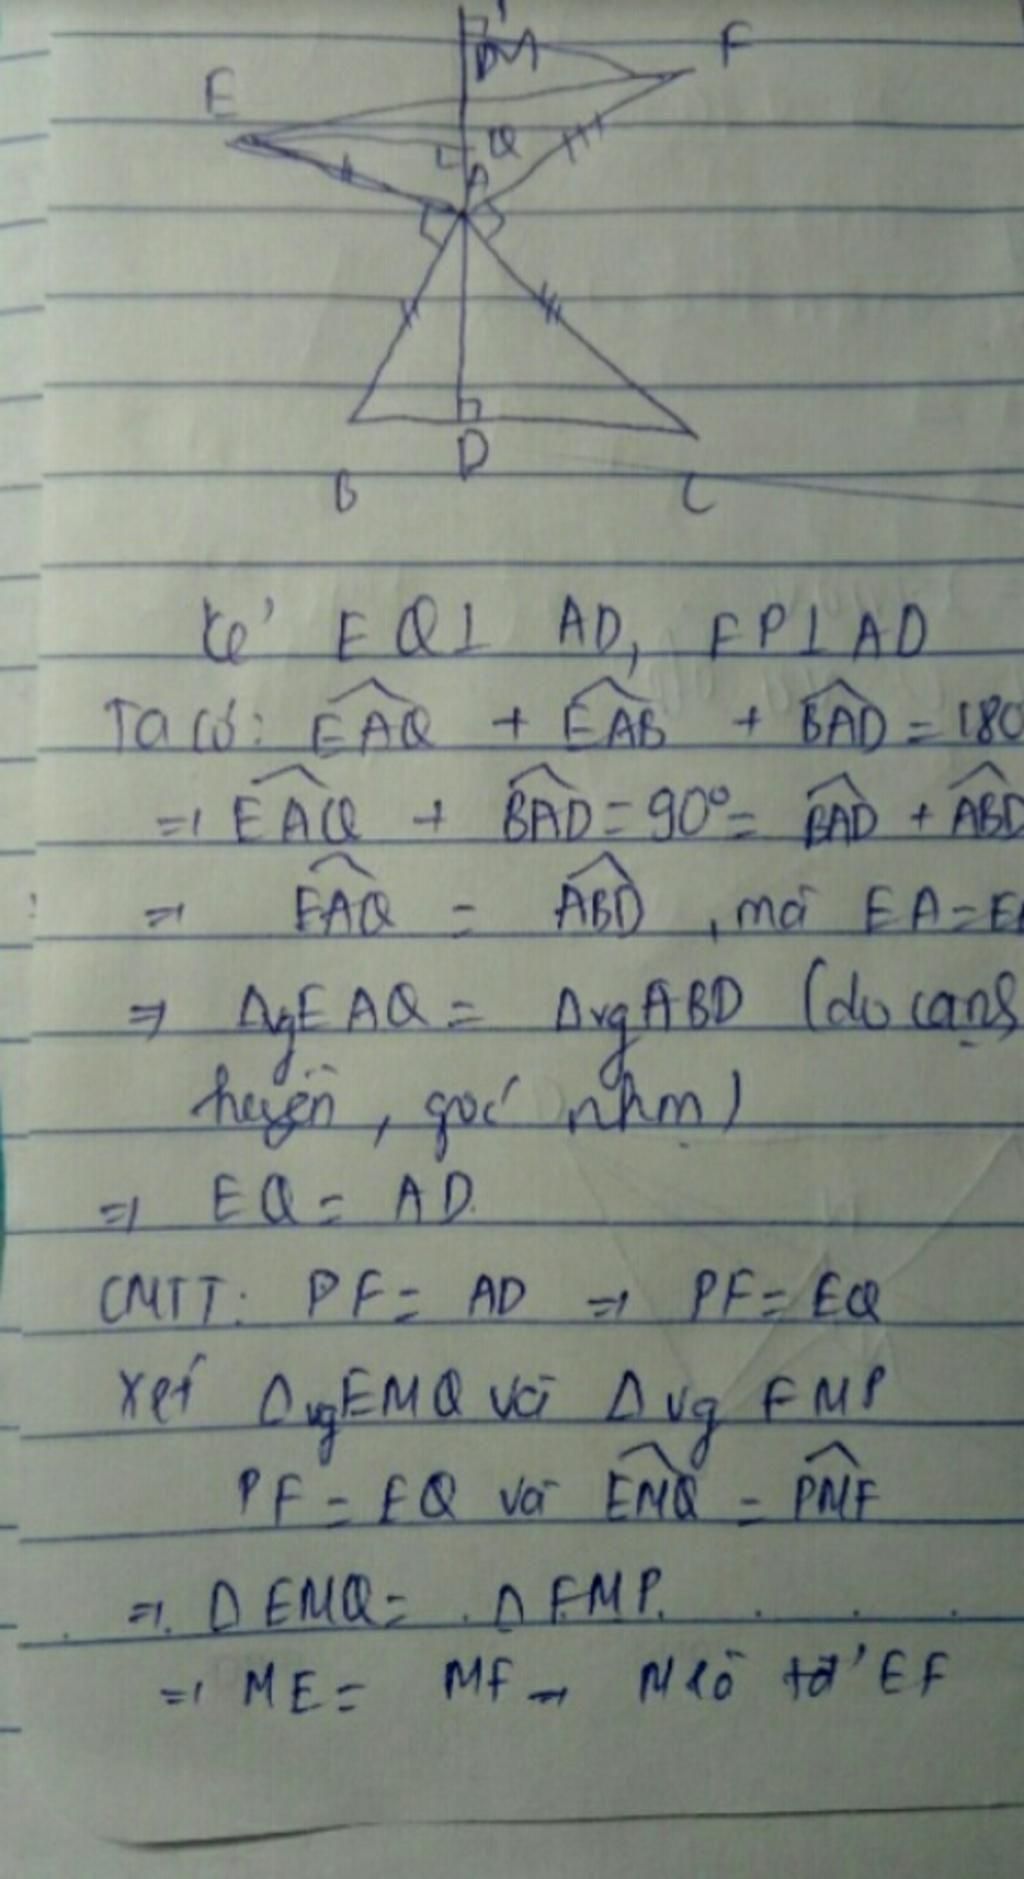 E
M
F
Q
A
D
B
C
Kẻ EQ⊥ AD, FP⊥AD
Ta có: EAQ + EAB + BAD = 180
=> EAQ + BAD = 90° = BAD + ABD
=> EAQ = ABD, mà EA=
=> ΔvgEAQ = ΔvgABD (do cạnh
huyền, góc nhọn)
=> EQ = AD
CMTT: PF = AD => PF = EQ
Xét ΔvgEMQ và Δvg FMP
PF = EQ và EMQ = PMF
=> Δ EMQ = Δ FMP
=> ME = MF → M là tđ' EF